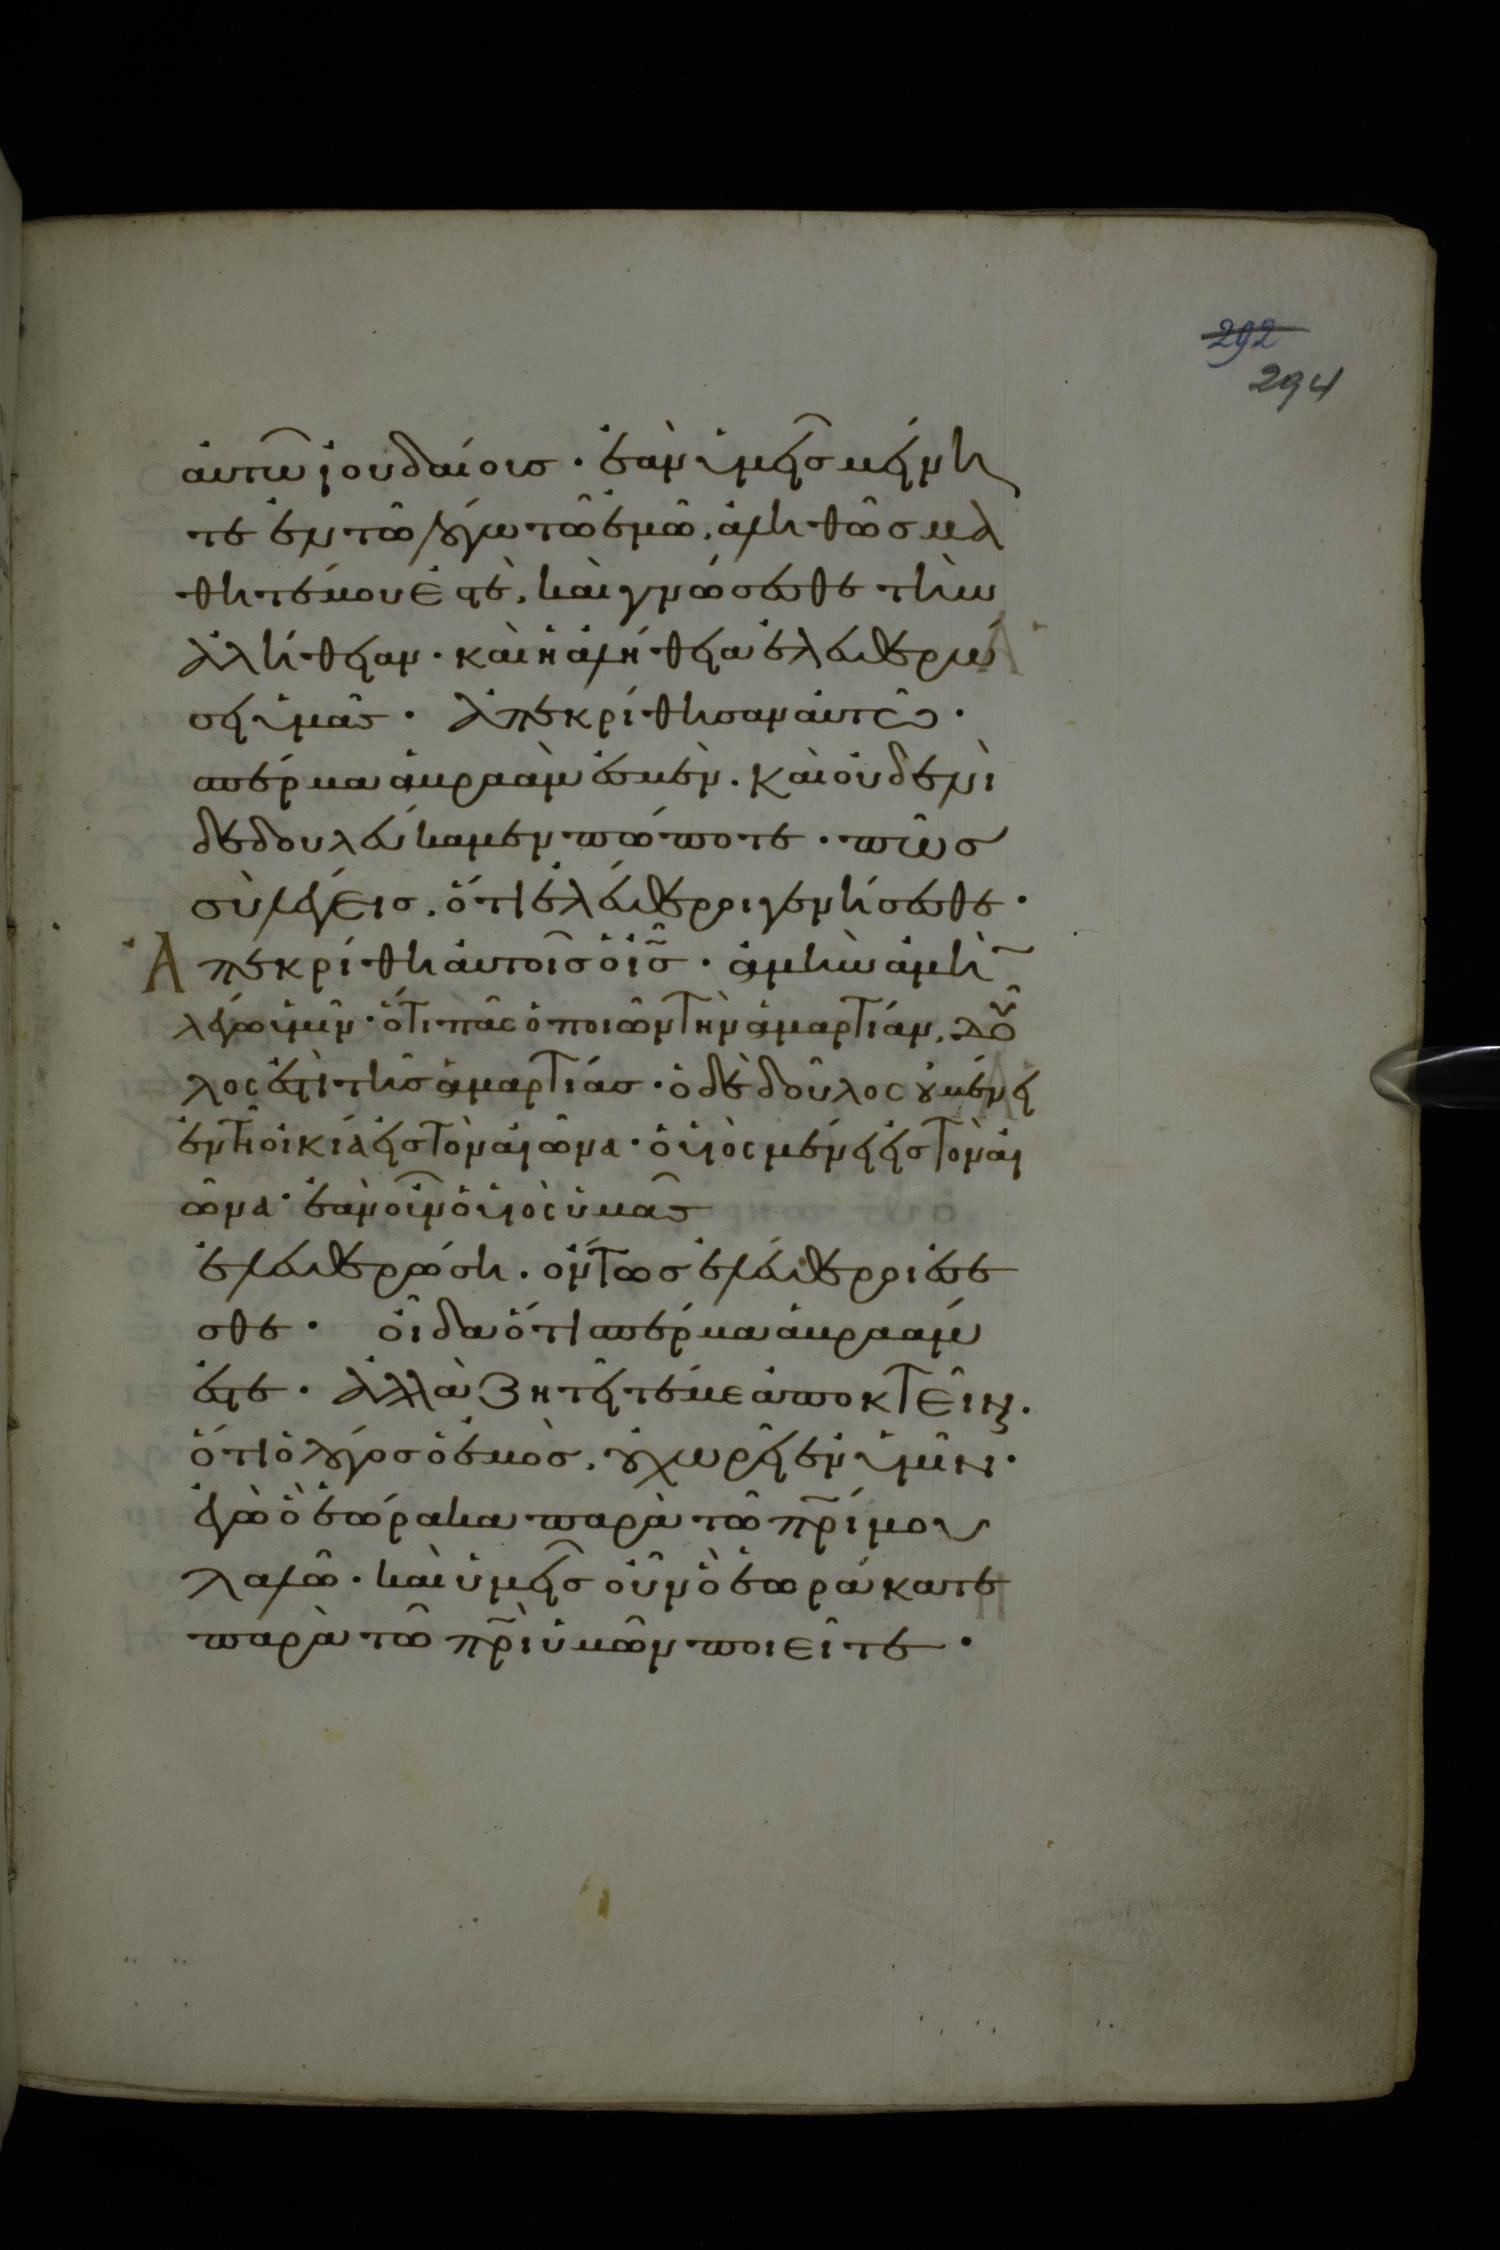 292
294
αυτῶ ἰουδαίοις · ἐὰν ὑμεῖς μείνη
τε ἐν τῶ λόγω τῶ ἐμῶ, ἀληθῶς μα
θηταί μου ἐστὲ, καὶ γνώσεσθε τὴν
ἀλήθειαν · καὶ ἡ ἀλήθεια ἐλευθερώ
σει ὑμᾶς · ἀπεκρίθησαν αὐτῶ ·
σπέρμα ἀβραὰμ ἐσμὲν. καὶ οὐδενὶ
δεδουλεύκαμεν πώποτε · πῶς
σὺ λέγεις, ὅτι ἐλεύθεροι γενήσεσθε ·
Ἀπεκρίθη αὐτοῖς ὁ ἰ̅ς̅ · ἀμὴν ἀμὴν
λέγω ὑμῖν · ὅτι πᾶς ὁ ποιῶν τὴν ἁμαρτίαν, δοῦ
λος ἐστὶ τῆς ἁμαρτίας · ὁ δὲ δοῦλος οὐ μένει
ἐν τῆ οἰκία εἰς τὸν αἰῶνα · ὁ υἱὸς μένει εἰς τὸν αἰ
ῶνα · ἐὰν οὖν ὁ υἱὸς ὑμᾶς
ἐλευθερώση · ὄντως ἐλεύθεροι ἔσε
σθε · οἶδα ὅτι σπέρμα ἀβραάμ
ἐστε · ἀλλὰ ζητεῖτέ με ἀποκτεῖναι.
ὅτι ὁ λόγος ὁ ἐμὸς, οὐ χωρεῖ ἐν ὑμῖν ·
ἐγὼ ὃ ἑώρακα παρὰ τῶ π̅ρ̅ί μου
λαλῶ · καὶ ὑμεῖς οὖν ὃ ἑωράκατε
παρὰ τῶ π̅ρ̅ὶ ὑμῶν ποιεῖτε ·